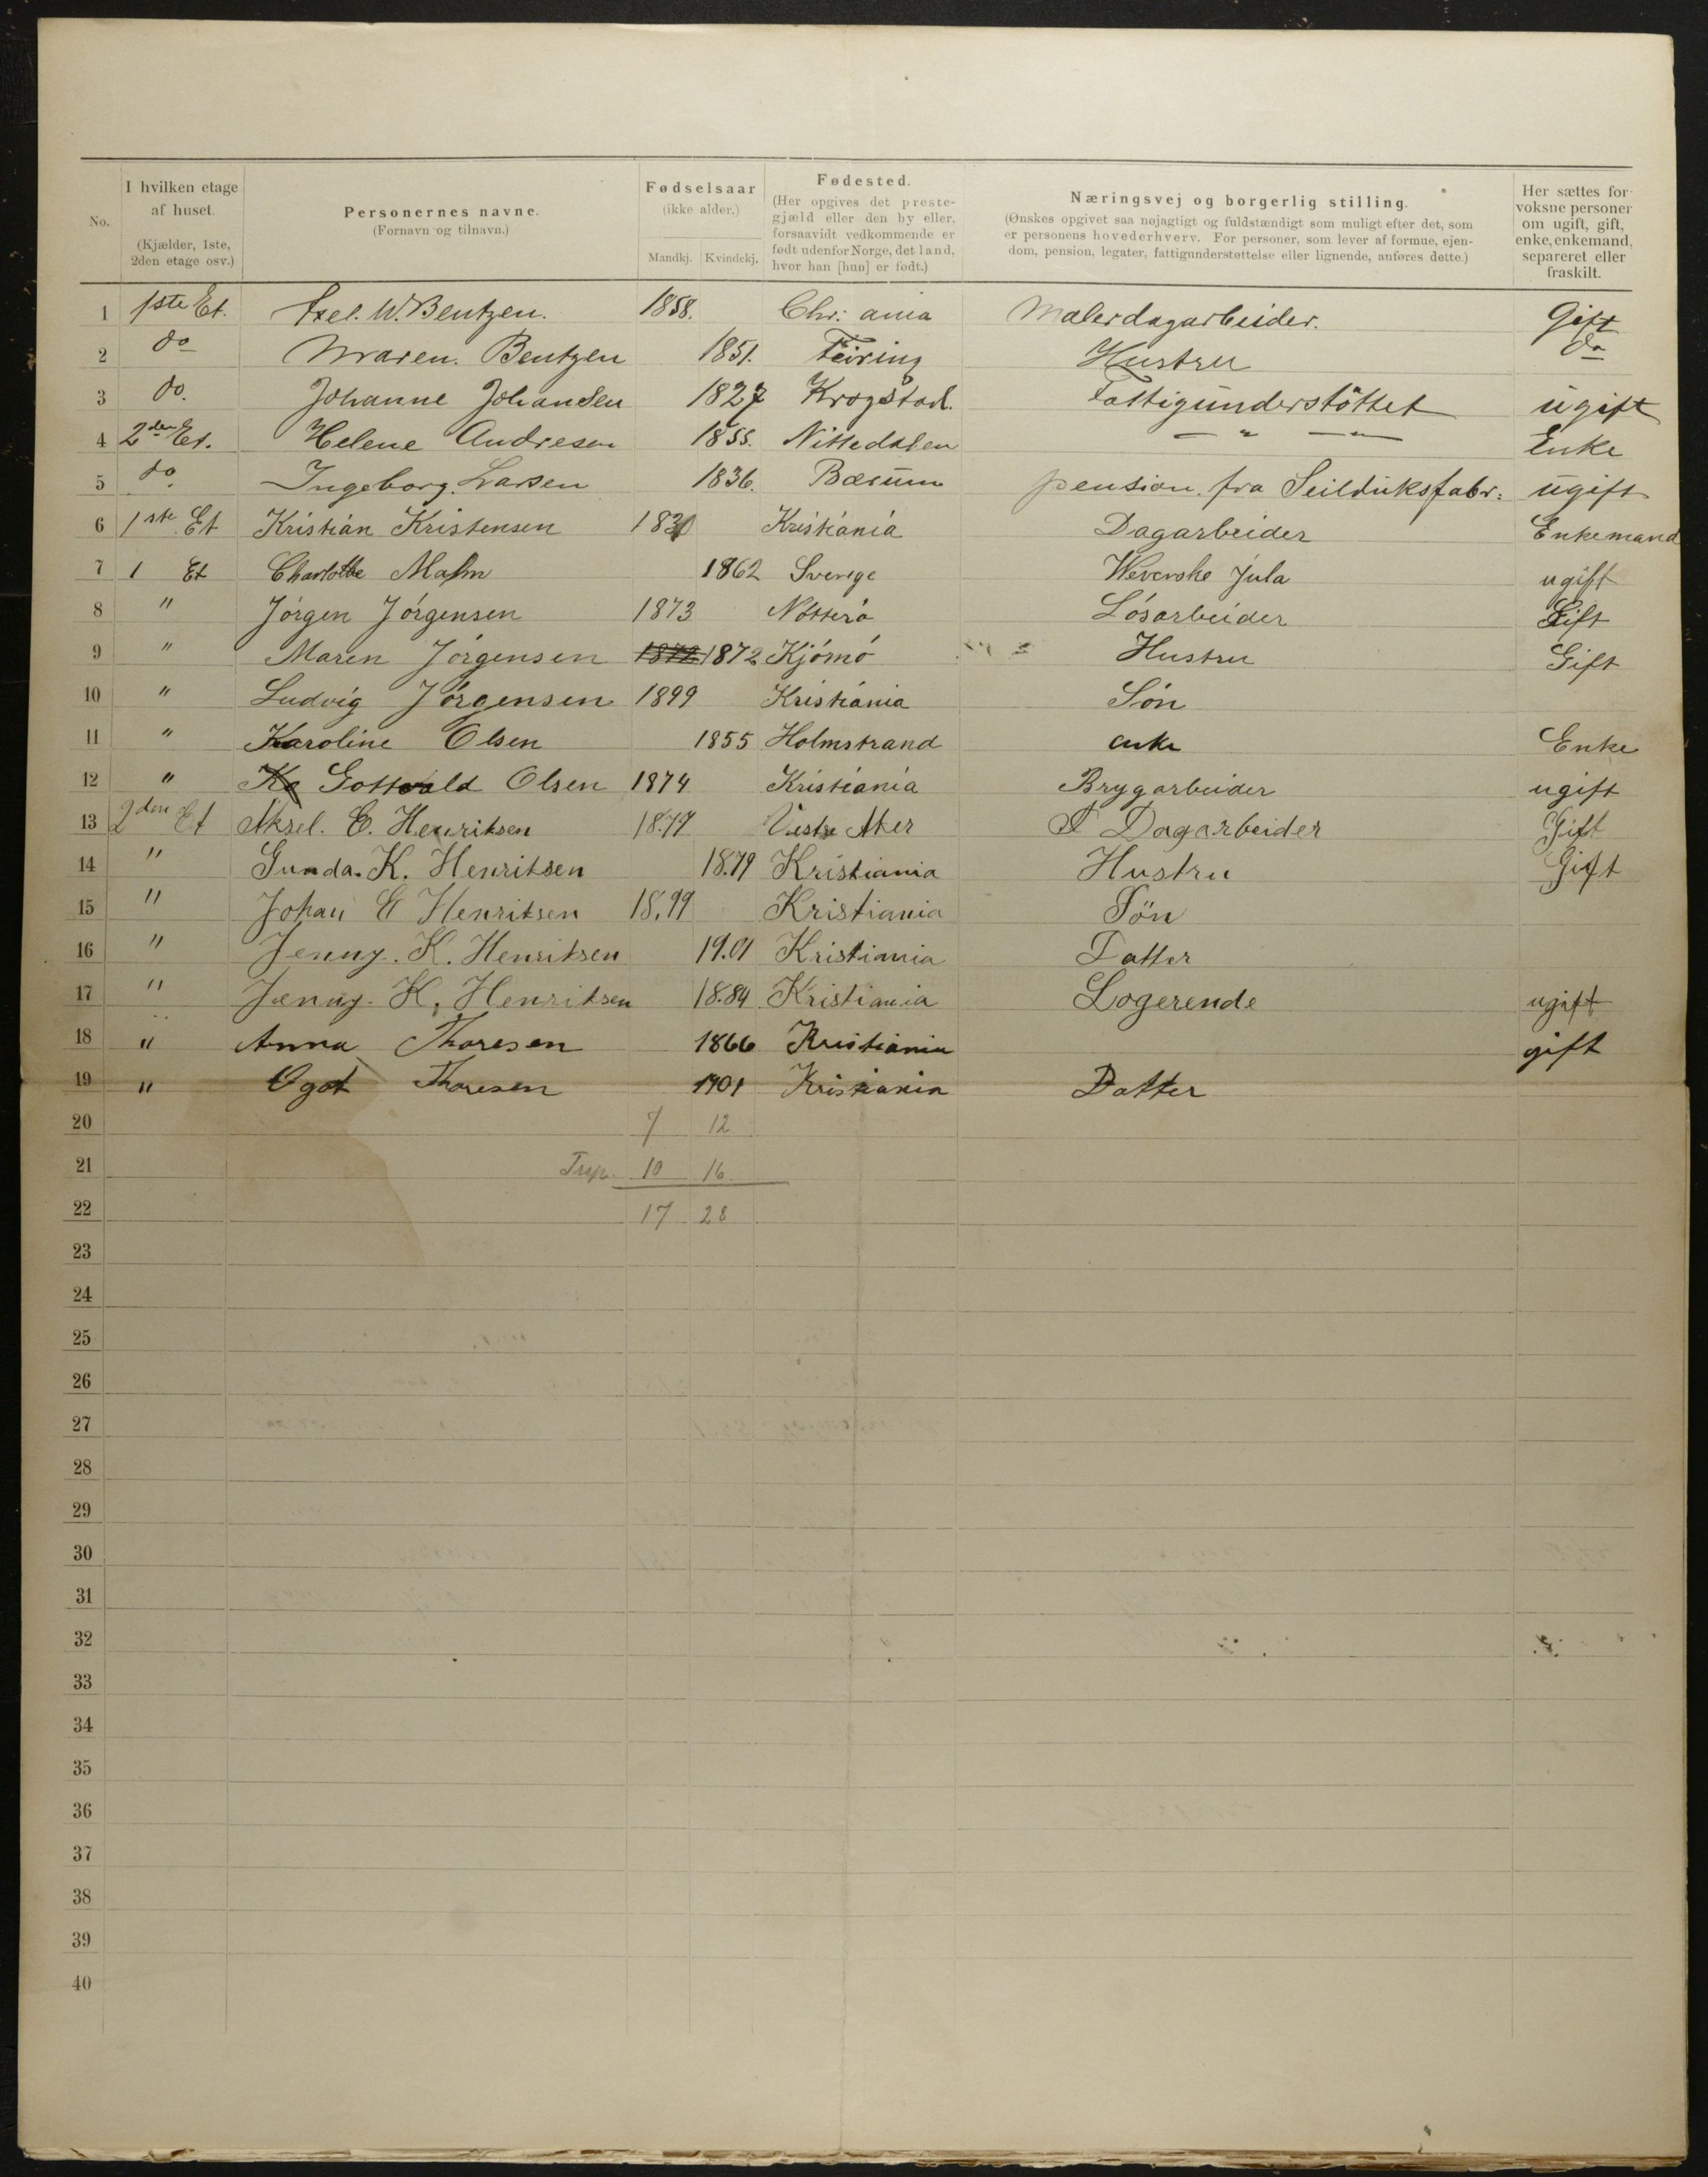 No.
I hvilken etage af huset. (Kjælder, 1ste, 2den etage osv.)
Personernes navne. (Fornavn og tilnavn.)
Fødselsaar (ikke alder.) Mandkj. Kvindekj.
Fødested. (Her opgives det prestegjæld eller den by eller, forsaavidt vedkommende er født udenfor Norge, det land, hvor han [hun] er født.)
Næringsvej og borgerlig stilling. (Ønskes opgivet saa nøjagtigt og fuldstændigt som muligt efter det, som er personens hovederhverv. For personer, som lever af formue, ejendom, pension, legater, fattigunderstøttelse eller lignende, anføres dette.)
Her sættes for voksne personer om ugift, gift, enke, enkemand, separeret eller fraskilt.
1 1ste Et. Axel. W. Bentzen. 1858. Chr: ania Malerdagarbeider. Gift
2 do Maren. Bentzen 1851. Feiring Hustru do
3 do. Johanne Johansen 1827 Krogstad. Fattigunderstöttet ugift
4 2den Et. Helene Andresen 1855. Nittedalen — " — " — Enke
5 do. Ingeborg. Larsen 1836. Bærum pension. fra Seilduksfabr: ugift
6 1ste Et Kristian Kristensen 1830 Kristiania Dagarbeider Enkemand
7 1 Et Charlotte Malm 1862 Sverige Weverske Jula ugift
8 " Jörgen Jörgensen 1873 Nötterö Lösarbeider Gift
9 " Maren Jörgensen 1872 1872 Kjömö Hustru Gift
10 " Ludvig Jörgensen 1899 Kristiania Sön
11 " Karoline Olsen 1855 Holmstrand enke Enke
12 " Ka Gottvald Olsen 1874 Kristiania Brygarbeider ugift
13 2den Et Aksel. E. Henriksen 18.79 Vestre Aker Dagarbeider Gift
14 " Gunda. K. Henriksen 18.79 Kristiania Hustru Gift
15 " Johan E Henriksen 18.99 Kristiania Sön
16 " Jenny. K. Henriksen 19.01 Kristiania Datter
17 " Jenny. K. Henriksen 18.84 Kristiania Logerende ugift
18 " Anna Thoresen 1866 Kristiania gift
19 " Ogot Thoresen 1901 Kristiania Datter
20 7 12
21 10 16
22 17 28
23
24
25
26
27
28
29
30
31
32
33
34
35
36
37
38
39
40